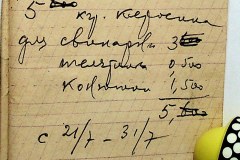 5 ку. керосина
для свинарки 3
телятник 0,500
конюшни 1,500
5,
с 21/7 - 31/7